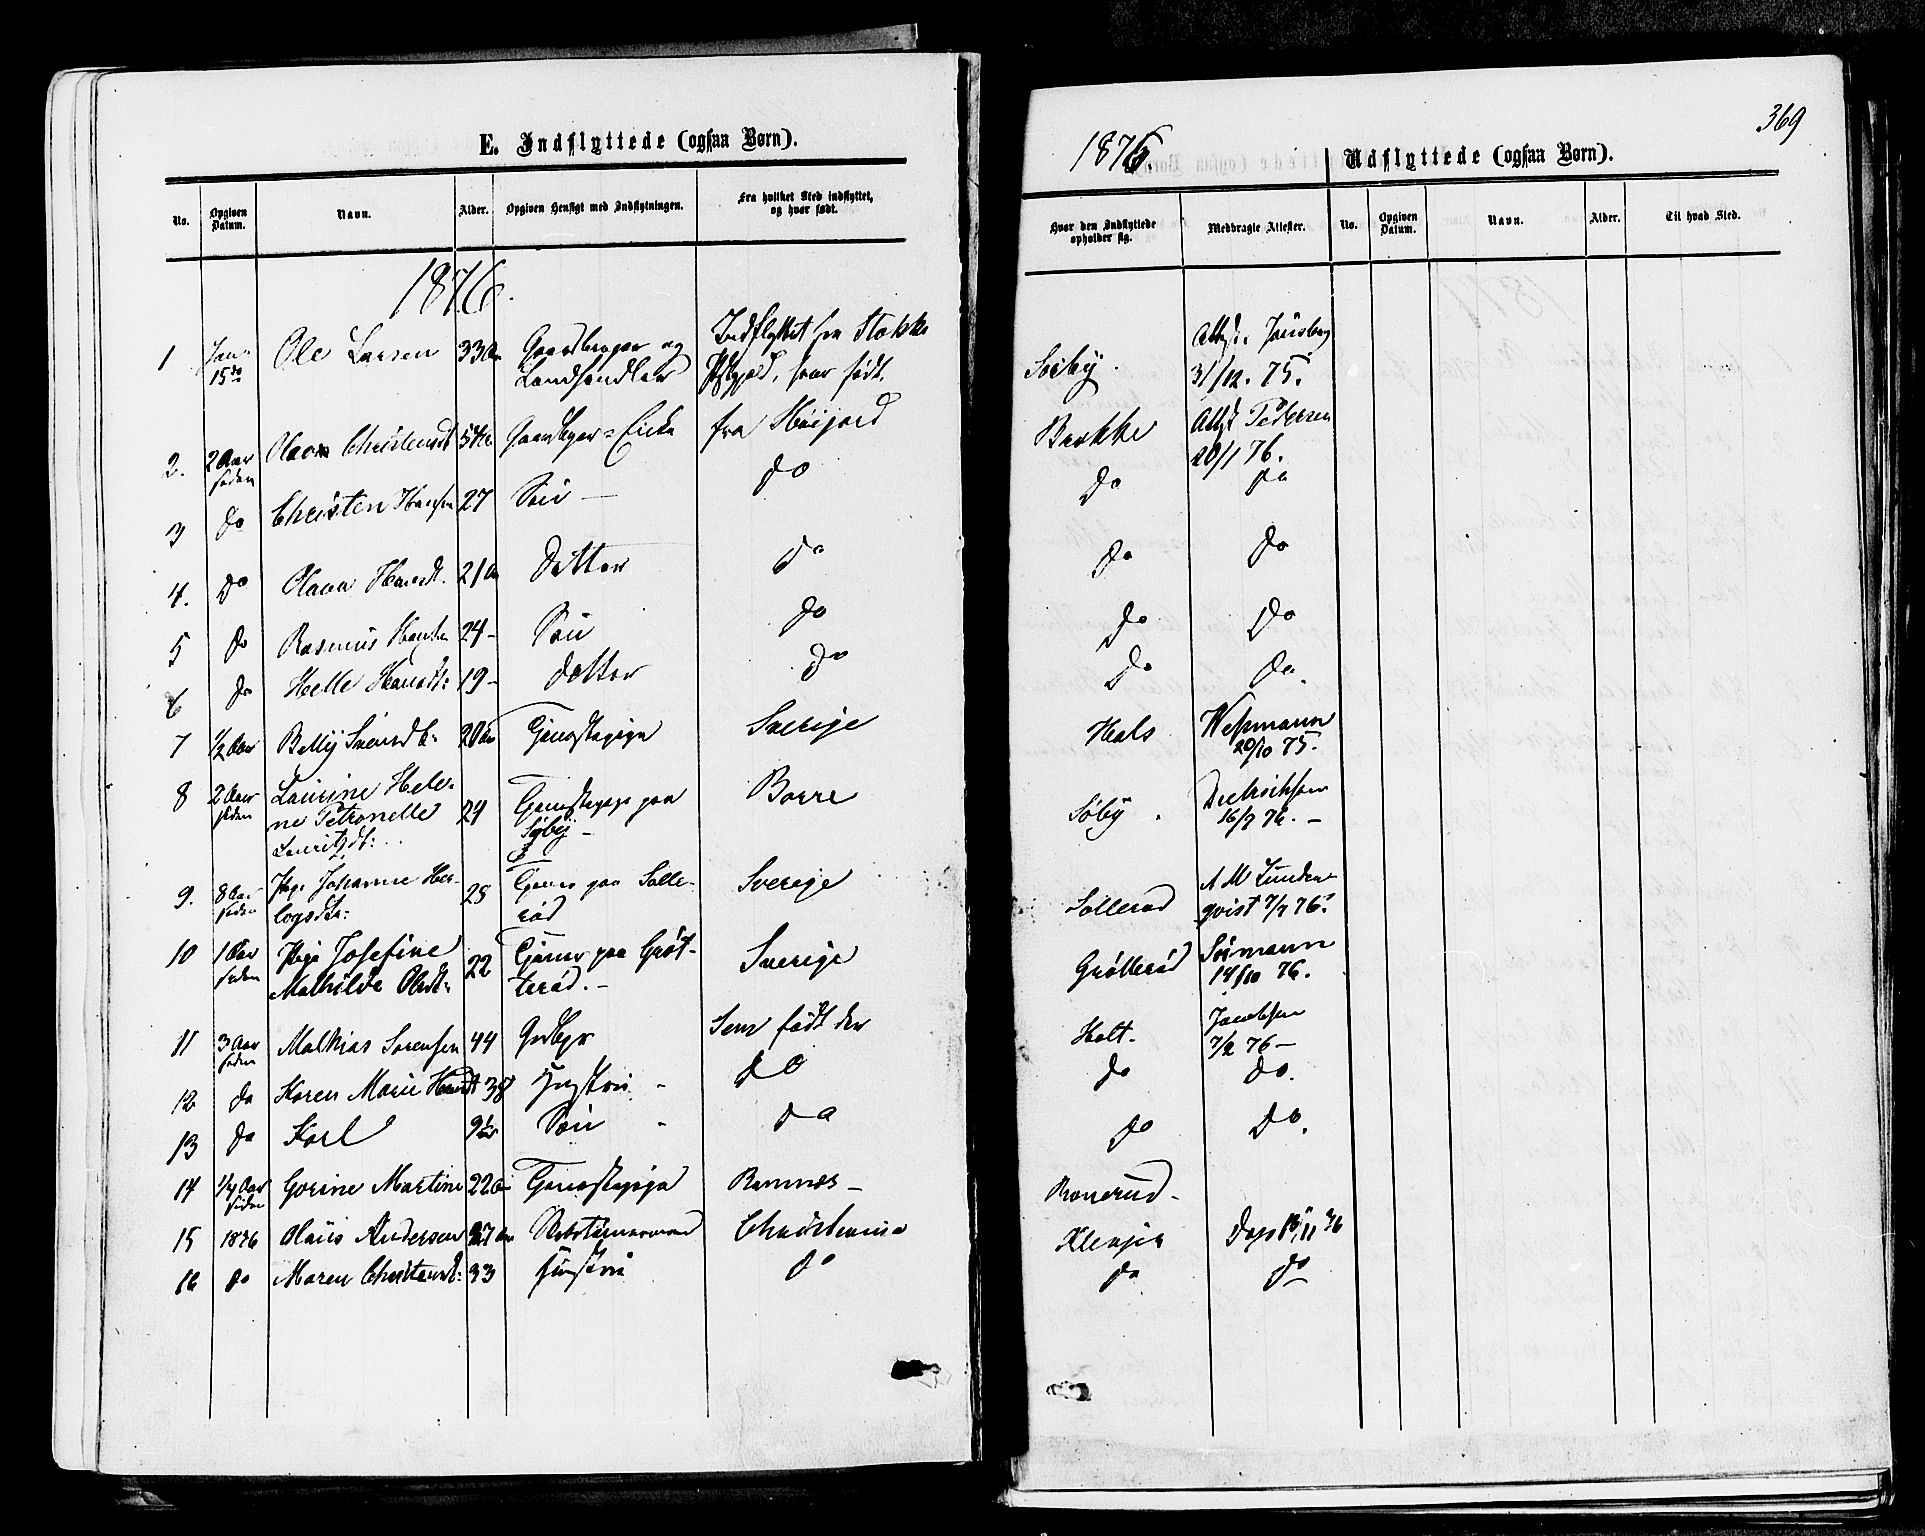 E. Indflyttede (ogsaa Børn).
No. Opgiven Datum. Navn. Alder. Opgiven Hensigt med Indflytningen. Fra hvilket Sted indflyttet, og hvor født.
1876.
1 Jan. 15de Ole Larsen 33 Gaardbruger og Landhandler Indflyttet fra Stokke Pstgjed, hvor født.
2. 2 Aar siden Christensdt 54 Enke fra Høijord
3 do Christen Hansen 27 Søn do
4. do Olava Hansdt. 21 Datter do
5 do Rasmus Hansen 24 - Søn do
6 do Helle Hansdt: 19 - Datter do
7 1/2 Aar Betty Svensdt: 20 Tjenestepige Sverige
8 2 Aar siden Laurine Hele-
ne Petronelle
Lauritzdt: 24 Tjenestepige paa Søby - Borre
9. 8 Aar siden Pige Johanne Her-
logsdtr: 25 Tjener paa Solle-
rød Sverige
10 1 Aar siden Pige Josefine
Mathilde Olsdt: 22 Tjener paa Grøt-
terød. - Sverige
11 3 Aar siden Mathias Sorensen 44 Sem født der
12 do Karen Marie Hansdt 38 Hustru do
13 do Karl 9 Søn do
14 1/4 Aar siden Gorine Martine 22 Tjenestepige Ramnes -
15 1876 Olaus Anderson Christiania
16 do Maren 33 Hustru do
1876.
369
Udflyttede (ogsaa Børn).
Hvor den Indflyttede opholder sig. Medbragte Attester. No. Opgiven Datum. Navn. Alder. Til hvad Sted.
Søeby. Jarlsberg
31/12. 75.
Brekke Attst Pedersen
20/1 76.
do do
do do
do do
do do.
Hals Wessmann
20/10 75.
Søby. Diedrichsen
16/7 76. -
Sollerød A M Lunden-
qvist 7/7 76.
Grøtterød Sörmann
14/10 76.
Holt. Jacobsen
7/2 76 -
do do.
do do.
Ronerud -
Klevjer 76
do do